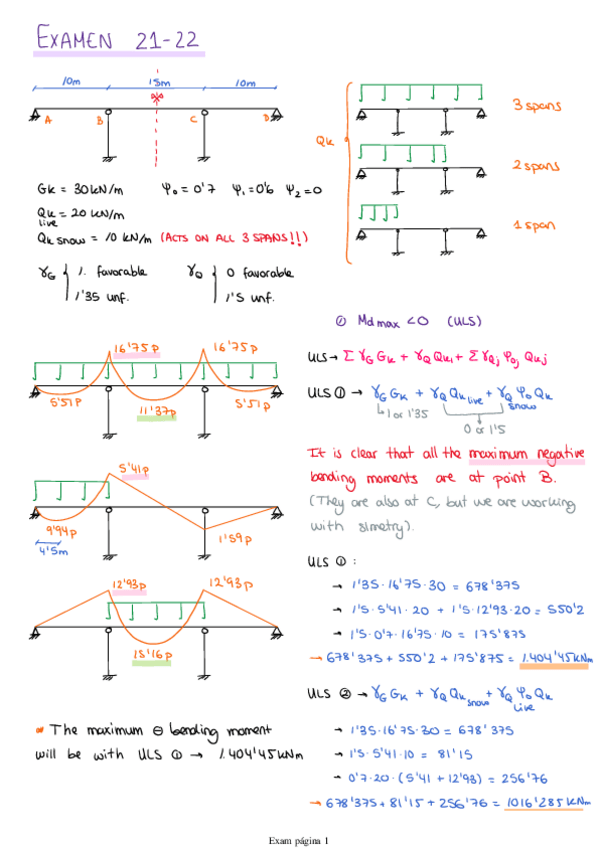 EXAMEN 21-22
10m 15m 10m
A B C D
Qk
3 spans
2 spans
1 span
Gk = 30 kN/m Ψ₀ = 0'7 Ψ₁ = 0'6 Ψ₂ = 0
Qk live = 20 kN/m
Qk snow = 10 kN/m (ACTS ON ALL 3 SPANS!!)
γG { 1. favorable
1'35 unf.
γQ { 0 favorable
1'5 unf.
16'75p 16'75p
5'51p 11'37p 5'51p
5'41p
9'94p
4'5m
1'59p
12'93p 12'93p
15'16p
* The maximum ⊖ bending moment
will be with ULS ① → 1.404'45 kNm
① Md max < 0 (ULS)
ULS → Σ γG Gk + γQ Qk1 + Σ γQj Ψ0j Qkj
ULS ① → γG Gk + γQ Qk live + γQ Ψ₀ Qk snow
↳ 1 or 1'35
0 or 1'5
It is clear that all the maximum negative
bending moments are at point B.
(They are also at C, but we are working
with simetry).
ULS ① :
→ 1'35 · 16'75 · 30 = 678'375
→ 1'5 · 5'41 · 20 + 1'5 · 12'93 · 20 = 550'2
→ 1'5 · 0'7 · 16'75 · 10 = 175'875
→ 678'375 + 550'2 + 175'875 = 1.404'45 kNm
ULS ② → γG Gk + γQ Qk snow + γQ Ψ₀ Qk live
→ 1'35 · 16'75 · 30 = 678'375
→ 1'5 · 5'41 · 10 = 81'15
→ 0'7 · 20 · (5'41 + 12'93) = 256'76
→ 678'375 + 81'15 + 256'76 = 1016'285 kNm
Exam página 1